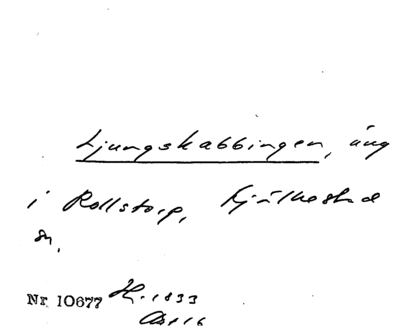 Ljungskabbingen, äng
i Rollstorp, Kjulkestad
sn.
Nr 10677 Hl. 1833